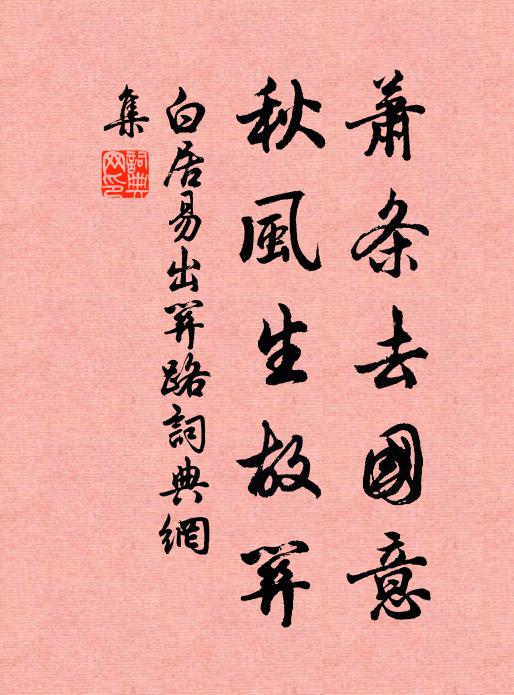 蕭条去國意
秋風生故關
白居易出關路詞典網
集
詞典
网印